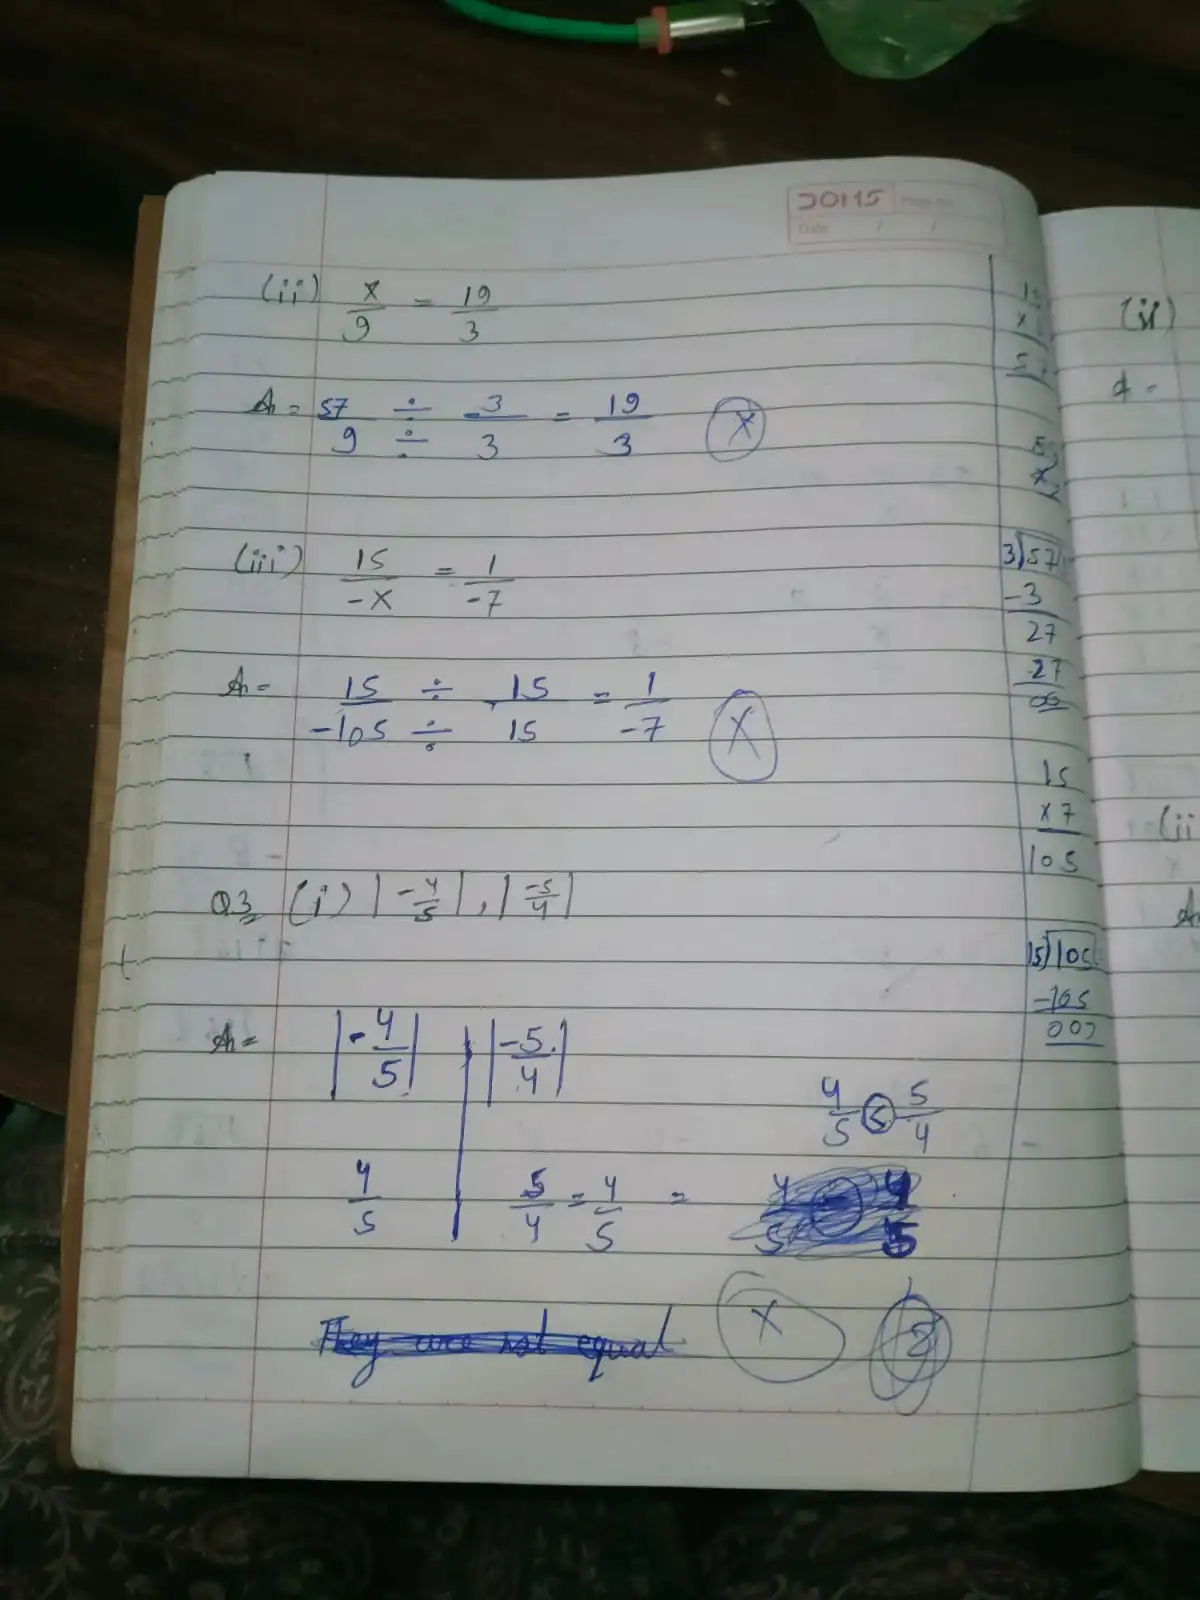 DOMS
Date / /
(ii) x/9 = 19/3
A = 57/9 ÷ 3/3 = 19/3 (X)
(iii) 15/-x = 1/-7
A = 15/-105 ÷ 15/15 = 1/-7 (X)
Q3 (i) |-4/5|, |-5/4|
A = |-4/5| |-5/4|
4/5 < 5/4
4/5 5/4 = 4/5 = 4/5 4/5
They are not equal (X)
3)57
-3
27
-27
00
15
x7
105
15)105
-105
000
(ii
A